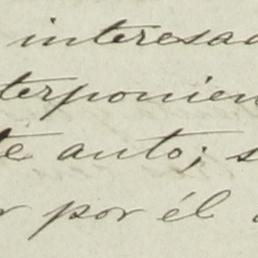 interesad
terponien
te auto; s
r por él